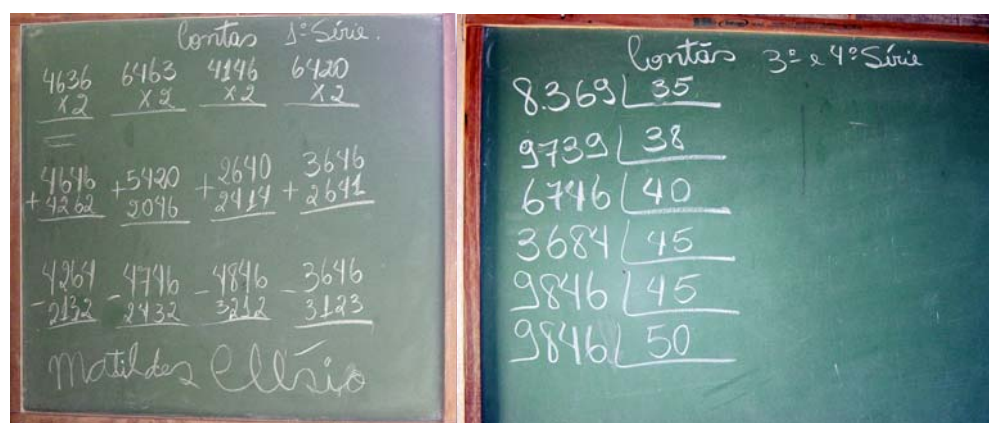 Contas 1ª Série.
4636 6463 4146 6420
x2 x2 x2 x2
4646 +5420 +2640 3646
+4262 2046 2414 +2641
4264 4746 4846 3646
-2132 -2432 -3212 -3123
Matildes Elísio
Contas 3ª e 4ª Série
8.369 35
9739 38
6746 40
3684 45
9846 45
9846 50